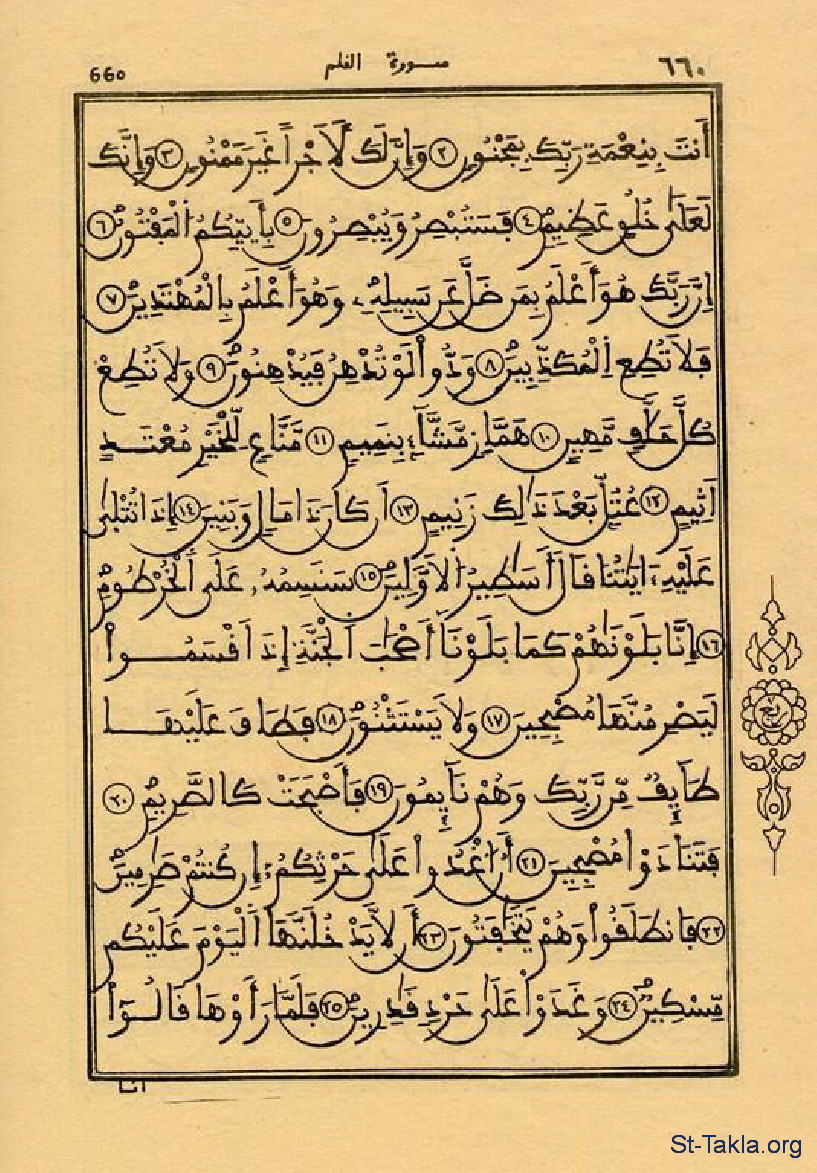 660 سورة القلم ٦٦٠
أَنتَ بِنِعْمَةِ رَبِّكَ بِمَجْنُونٍ ٢ وَإِنَّ لَكَ لَأَجْراً غَيْرَ مَمْنُونٍ ٣ وَإِنَّكَ
لَعَلَىٰ خُلُقٍ عَظِيمٍ ٤ فَسَتُبْصِرُ وَيُبْصِرُونَ ٥ بِأَييِّكُمُ الْمَفْتُونُ ٦
إِنَّ رَبَّكَ هُوَ أَعْلَمُ بِمَن ضَلَّ عَن سَبِيلِهِ وَهُوَ أَعْلَمُ بِالْمُهْتَدِينَ ٧
فَلَا تُطِعِ الْمُكَذِّبِينَ ٨ وَدُّوا لَوْ تُدْهِنُ فَيُدْهِنُونَ ٩ وَلَا تُطِعْ
كُلَّ حَلَّافٍ مَّهِينٍ ١٠ هَمَّازٍ مَّشَّآءٍ بِنَمِيمٍ ١١ مَّنَّاعٍ لِّلْخَيْرِ مُعْتَدٍ
أَثِيمٍ ١٢ عُتُلٍّ بَعْدَ ذَٰلِكَ زَنِيمٍ ١٣ أَن كَانَ ذَا مَالٍ وَبَنِينَ ١٤ إِذَا تُتْلَىٰ
عَلَيْهِ ءَايَٰتُنَا قَالَ أَسَٰطِيرُ الْأَوَّلِينَ ١٥ سَنَسِمُهُ عَلَى الْخُرْطُومِ
١٦ إِنَّا بَلَوْنَٰهُمْ كَمَا بَلَوْنَا أَصْحَٰبَ الْجَنَّةِ إِذْ أَقْسَمُوا
لَيَصْرِمُنَّهَا مُصْبِحِينَ ١٧ وَلَا يَسْتَثْنُونَ ١٨ فَطَافَ عَلَيْهَا
طَآئِفٌ مِّن رَّبِّكَ وَهُمْ نَآئِمُونَ ١٩ فَأَصْبَحَتْ كَالصَّرِيمِ ٢٠
فَتَنَادَوْا مُصْبِحِينَ ٢١ أَنِ اغْدُوا عَلَىٰ حَرْثِكُمُ إِن كُنتُمْ صَٰرِمِينَ
٢٢ فَانطَلَقُوا وَهُمْ يَتَخَٰفَتُونَ ٢٣ أَن لَّا يَدْخُلَنَّهَا الْيَوْمَ عَلَيْكُم
مِّسْكِينٌ ٢٤ وَغَدَوْا عَلَىٰ حَرْدٍ قَٰدِرِينَ ٢٥ فَلَمَّا رَأَوْهَا قَالُوٓا
إنا
St-Takla.org